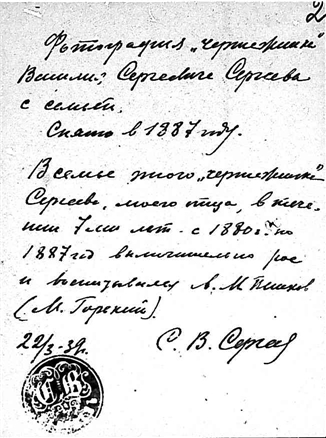 2
Фотография „чертежника"
Василия Сергеевича Сергеева
с семьей.
Снято в 1887 году.
В семье этого „чертежника"
Сергеева, моего отца, в тече-
нии 7-ми лет - с 1880 г. по
1887 год включительно рос
и воспитывался А. М. Пешков
(М. Горский).
22/3-39г. С. В. Сергеев
СВ